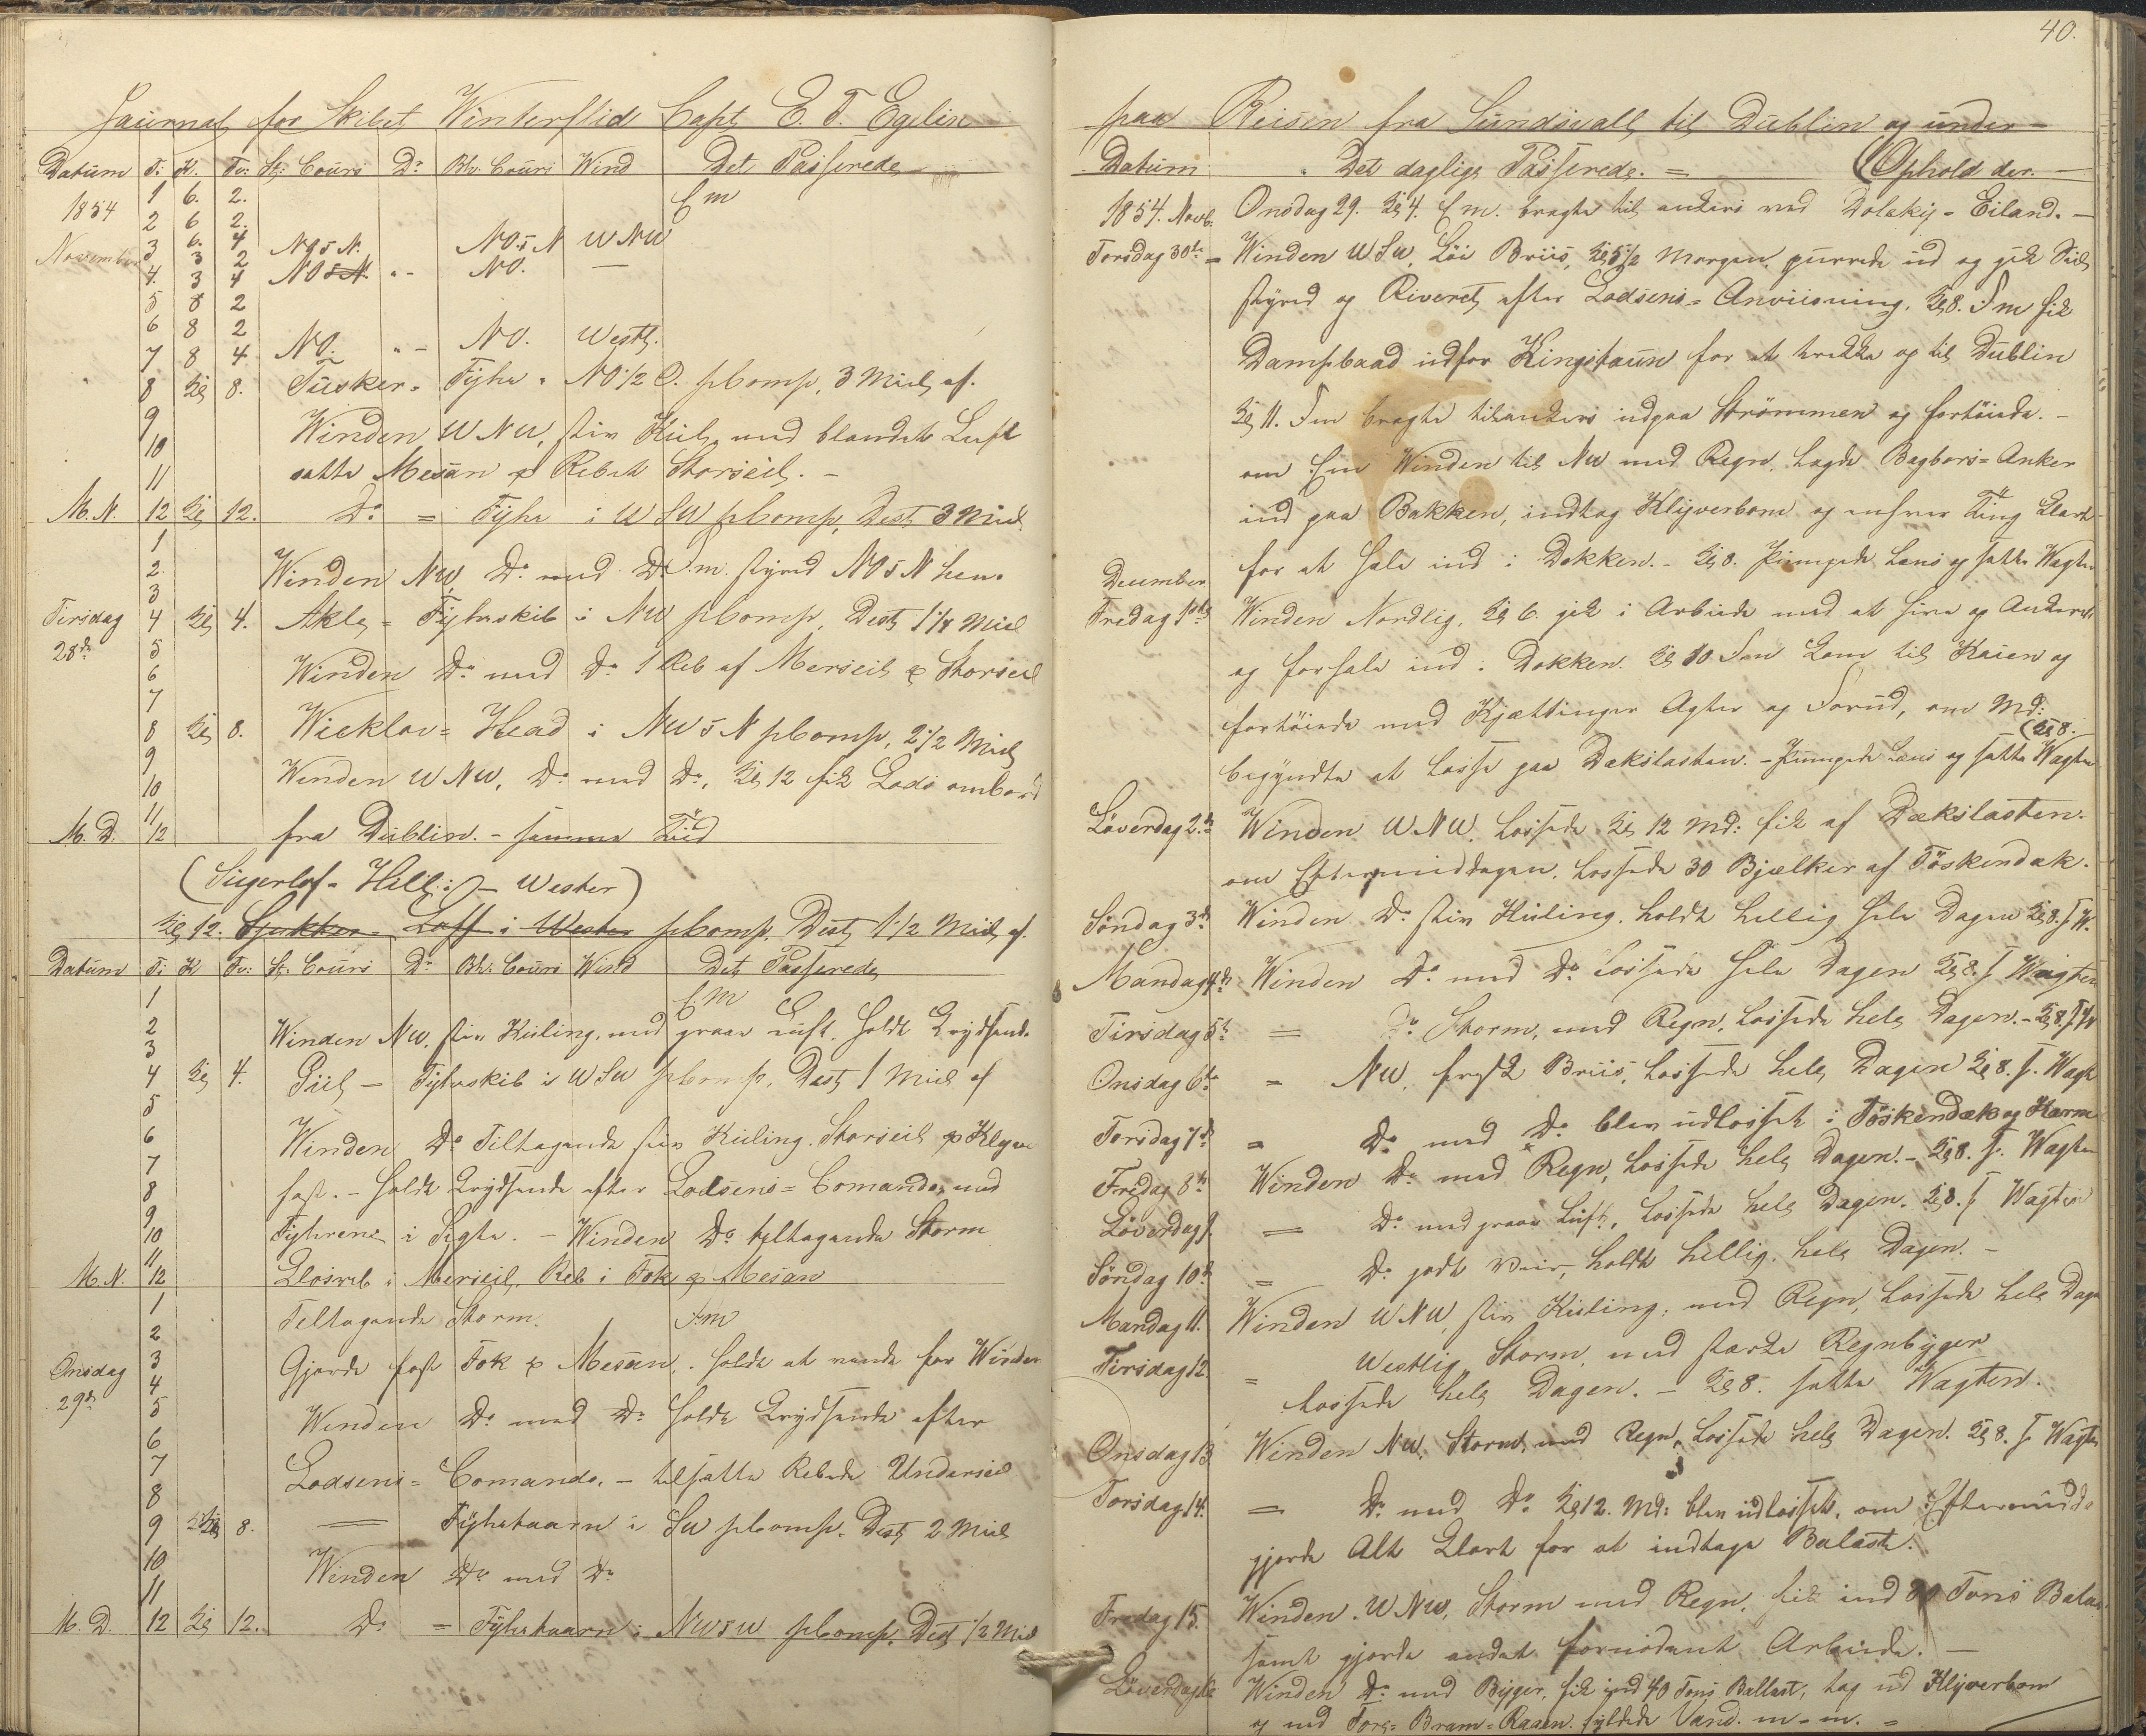 Journal for Skibet Winterflid Capt E. T. Egelin
Datum T: K. Tv: St: Cours Do Bh: Cours Wind Det Passerede
1854 1 6. 2. Em
2 6 2.
November 3 6. 4 NO 5 N. NO. 5 N WNW
3 2
4. 3 4 NO 5 N. " - NO. —
5 8 2
6 8 2
7 8 4. NO. " - NO. Westl.
8 Kl 8. Tusker = Fyhr = NO 1/2 O. pComp, 3 Miil af.
9 Winden WNW, stiv Kuel, med blandet Luft
10
11 satte Mesan & Rebet Storseil. -
M.N. 12 Kl 12. Do = Fyhr i WSW pComp, Dist 3 Miil
1
2 Winden NW, Do med Do Fm. styred NO 5 N hen.
3
Tirsdag 4 Kl 4. Akl = Fyhrskib i NW pComp, Dist 1 1/4 Miil
28de 5
6 Winden Do med Do 1 Reb af Merseil & Storseil
7
8 Kl 8. Wicklow = Head i NW 5 N pComp, 2 1/2 Miil
9
10 Winden WNW, Do med Do, Kl 12 fik Lods ombord
11
M.D. 12 fra Dublin. - samme Tiid
(Sugerlof = Hill i - Wester)
Kl 12. Sjukker = Loff i Wester pComp. Dist 1 1/2 Miil af.
Datum T: K Tv: St: Cours Do Bh: Cours Wind Det Passerede
1 Em
2 Winden NW, stiv Kuling, med graae Luft. holdt Krydsende
3
4 Kl 4. Fyhrskib i WSW pComp. Dist 1 Miil af
5
6 Winden Do Tiltagende stiv Kuling. Storseil & Klyver
7
8 fast. - holdt Krydsende efter Lodsens = Comando, med
9
10 Fyhrene i Sigte. - Winden Do tiltagende Storm
11
M.N. 12 Klosreb i Merseil, Reb i Fok & Mesan
1 Tiltagende Storm. Fm
2
Onsdag 3 Gjorde fast Fok & Mesan, holdt at vende for Winden
29de 4
5 Winden Do med Do holdt Krydsende efter
6
7 Lodsens = Comando. - tilsatte Rebede Underseil
8
9 Kl 8. = Fyhrtaarn i SW pComp. Dist 2 Miil
10 Winden Do med Do
11
M.D. 12 Kl 12. Do = Fyhrtaarn i NW 5 W pComp. Dist 1/2 Miil
40.
paa Reisen fra Sundsvall til Dublin og under =
Datum Det daglige Passerede. = (Ophold der. -
1854. Novb. Onsdag 29. Kl 4. Em. bragte til ankers ved Dolekij = Eiland. -
Torsdag 30te = Winden WSW, Löi Briis, Kl 5 1/2 Morgen, purrede ud og gik Seil
styred op Riveret efter Lodsens = Anviisning, Kl 8. Fm fik
Dampbaad udfor Kingstoun for at trække op til Dublin
Kl 11. Fm bragte tilankers udpaa Strömmen og fortöiede. -
om Em Winden til NW med Regn, lagde Bagbors = Anker
ind paa Bakken, indtog Klyverbom og enhver Ting Klart
for at hale ind i Dokken. - Kl 8. Pumpede Læns og satte Wagten
December
Fredag 1ste Winden Nordlig, Kl 6. gik i Arbeide med at hive op Ankeret
og forhale ind i Dokken. Kl 10 Fm kom til Kaien og
fortöiede med Kjættinger Agter og Forud, om Md:
begyndte at losse paa Dækslasten. - Pumpede Læns og satte Wagten (Kl 8.
Löverdag 2de Winden WNW. Lossede Kl 12 Md: fik af Dækslasten.
om Eftermiddagen. lossede 30 Bjælker af Töskendæk.
Söndag 3de Winden Do stiv Kuling. holdt hellig hele Dagen Kl 8. s W.
Mandag 4de Winden Do med Do Lossede hele Dagen Kl 8. s Wagten
Tirsdag 5te = Do Storm, med Regn, Lossede hele Dagen. - Kl 8. s W
Onsdag 6te = NW, frisk Briis, Lossede hele Dagen Kl 8. s. Wagt
Torsdag 7de = Do med Do blev udlosset i Töskendæk og
Fredag 8de Winden Do med Regn, Lossede hele Dagen. - Kl 8. s. Wagten
Löverdag 9. = Do med graae Luft, Lossede hele Dagen. Kl 8. s Wagten
Söndag 10de = Do godt Veir, holdt hellig, hele Dagen. -
Mandag 11. Winden WNW, stiv Kuling, med Regn, Lossede hele Dage
Tirsdag 12. = Westlig Storm, med stærke Regnbyger
Lossede hele Dagen. - Kl 8. satte Wagten.
Onsdag 13. Winden NW, Storm, med Regn, Lossede hele Dagen. Kl 8. s Wagten
Torsdag 14. = Do med Do Kl 12. Md: blev udlosset, om Eftermidda
gjorde Alt Klart for at indtage Balast.
Fredag 15. Winden WNW, Storm med Regn, fik ind Tons Balas
samt gjorde andet fornödent Arbeide. -
Löverdag 16 Winden Do med Byger, fik ind 40 Tons Ballast, tog ud Klyverbom
og ned = Bram = Raaen. fyldede Vand. m-m. =